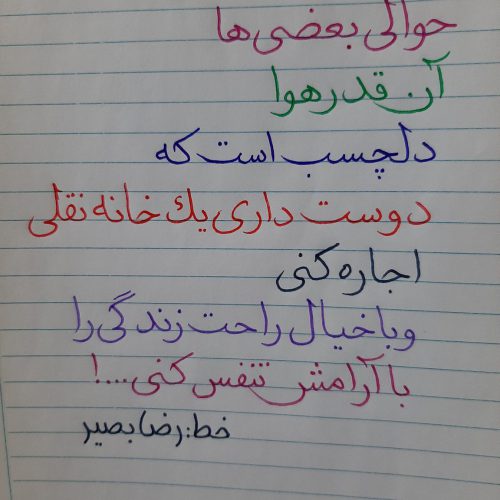 حوالی بعضی ها
آن قدر هوا
دلچسب است که
دوست داری یك خانه نقلی
اجاره کنی
و با خیال راحت زندگی را
با آرامش تنفس کنی....!
خط:رضا بصیر